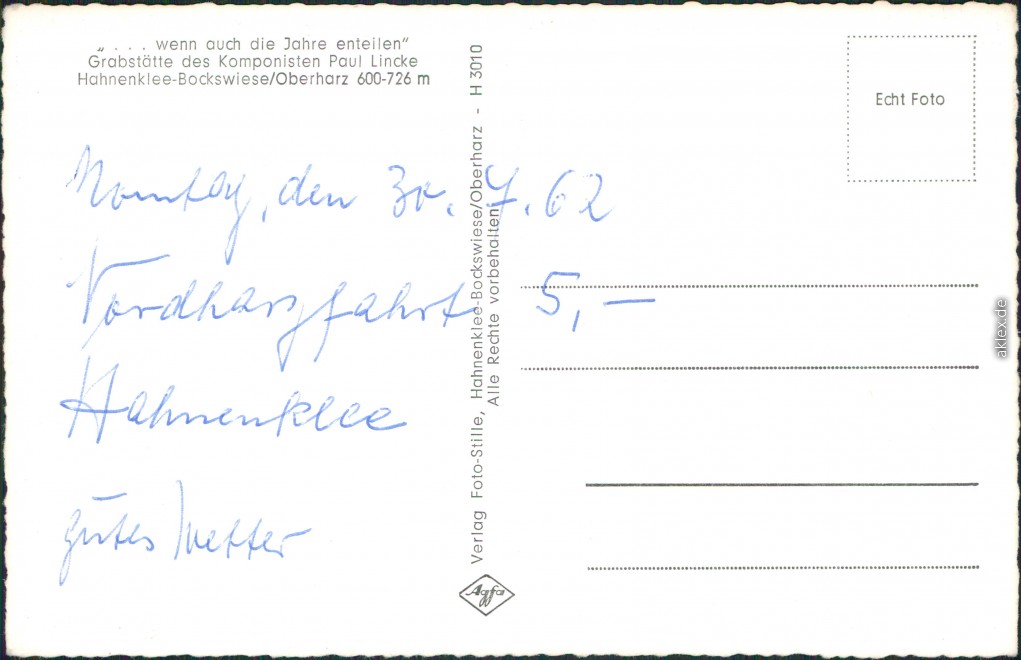 „. . . wenn auch die Jahre enteilen“
Grabstätte des Komponisten Paul Lincke
Hahnenklee-Bockswiese/Oberharz 600-726 m
Echt Foto
Montag, den 30. 7. 62
Nordharzfahrt 5,—
Hahnenklee
gutes Wetter
Verlag Foto-Stille, Hahnenklee-Bockswiese/Oberharz - H 3010
Alle Rechte vorbehalten
Agfa
aklex.de